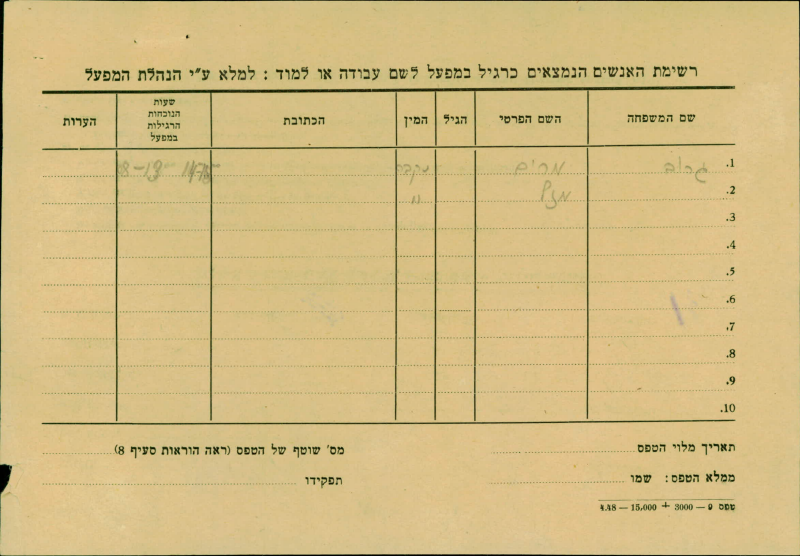 רשימת האנשים הנמצאים כרגיל במפעל לשם עבודה או למוד : למלא ע״י הנהלת המפעל
שם המשפחה השם הפרטי הגיל המין הכתובת שעות הנוכחות הרגילות במפעל הערות
1. מרים נקבה 8-13
2. מזל "
3.
4.
5.
6.
7.
8.
9.
10.
תאריך מלוי הטפס מס' שוטף של הטפס (ראה הוראות סעיף 8)
ממלא הטפס: שמו תפקידו
טפס 9 — 3000 + 15.000 — 4.48